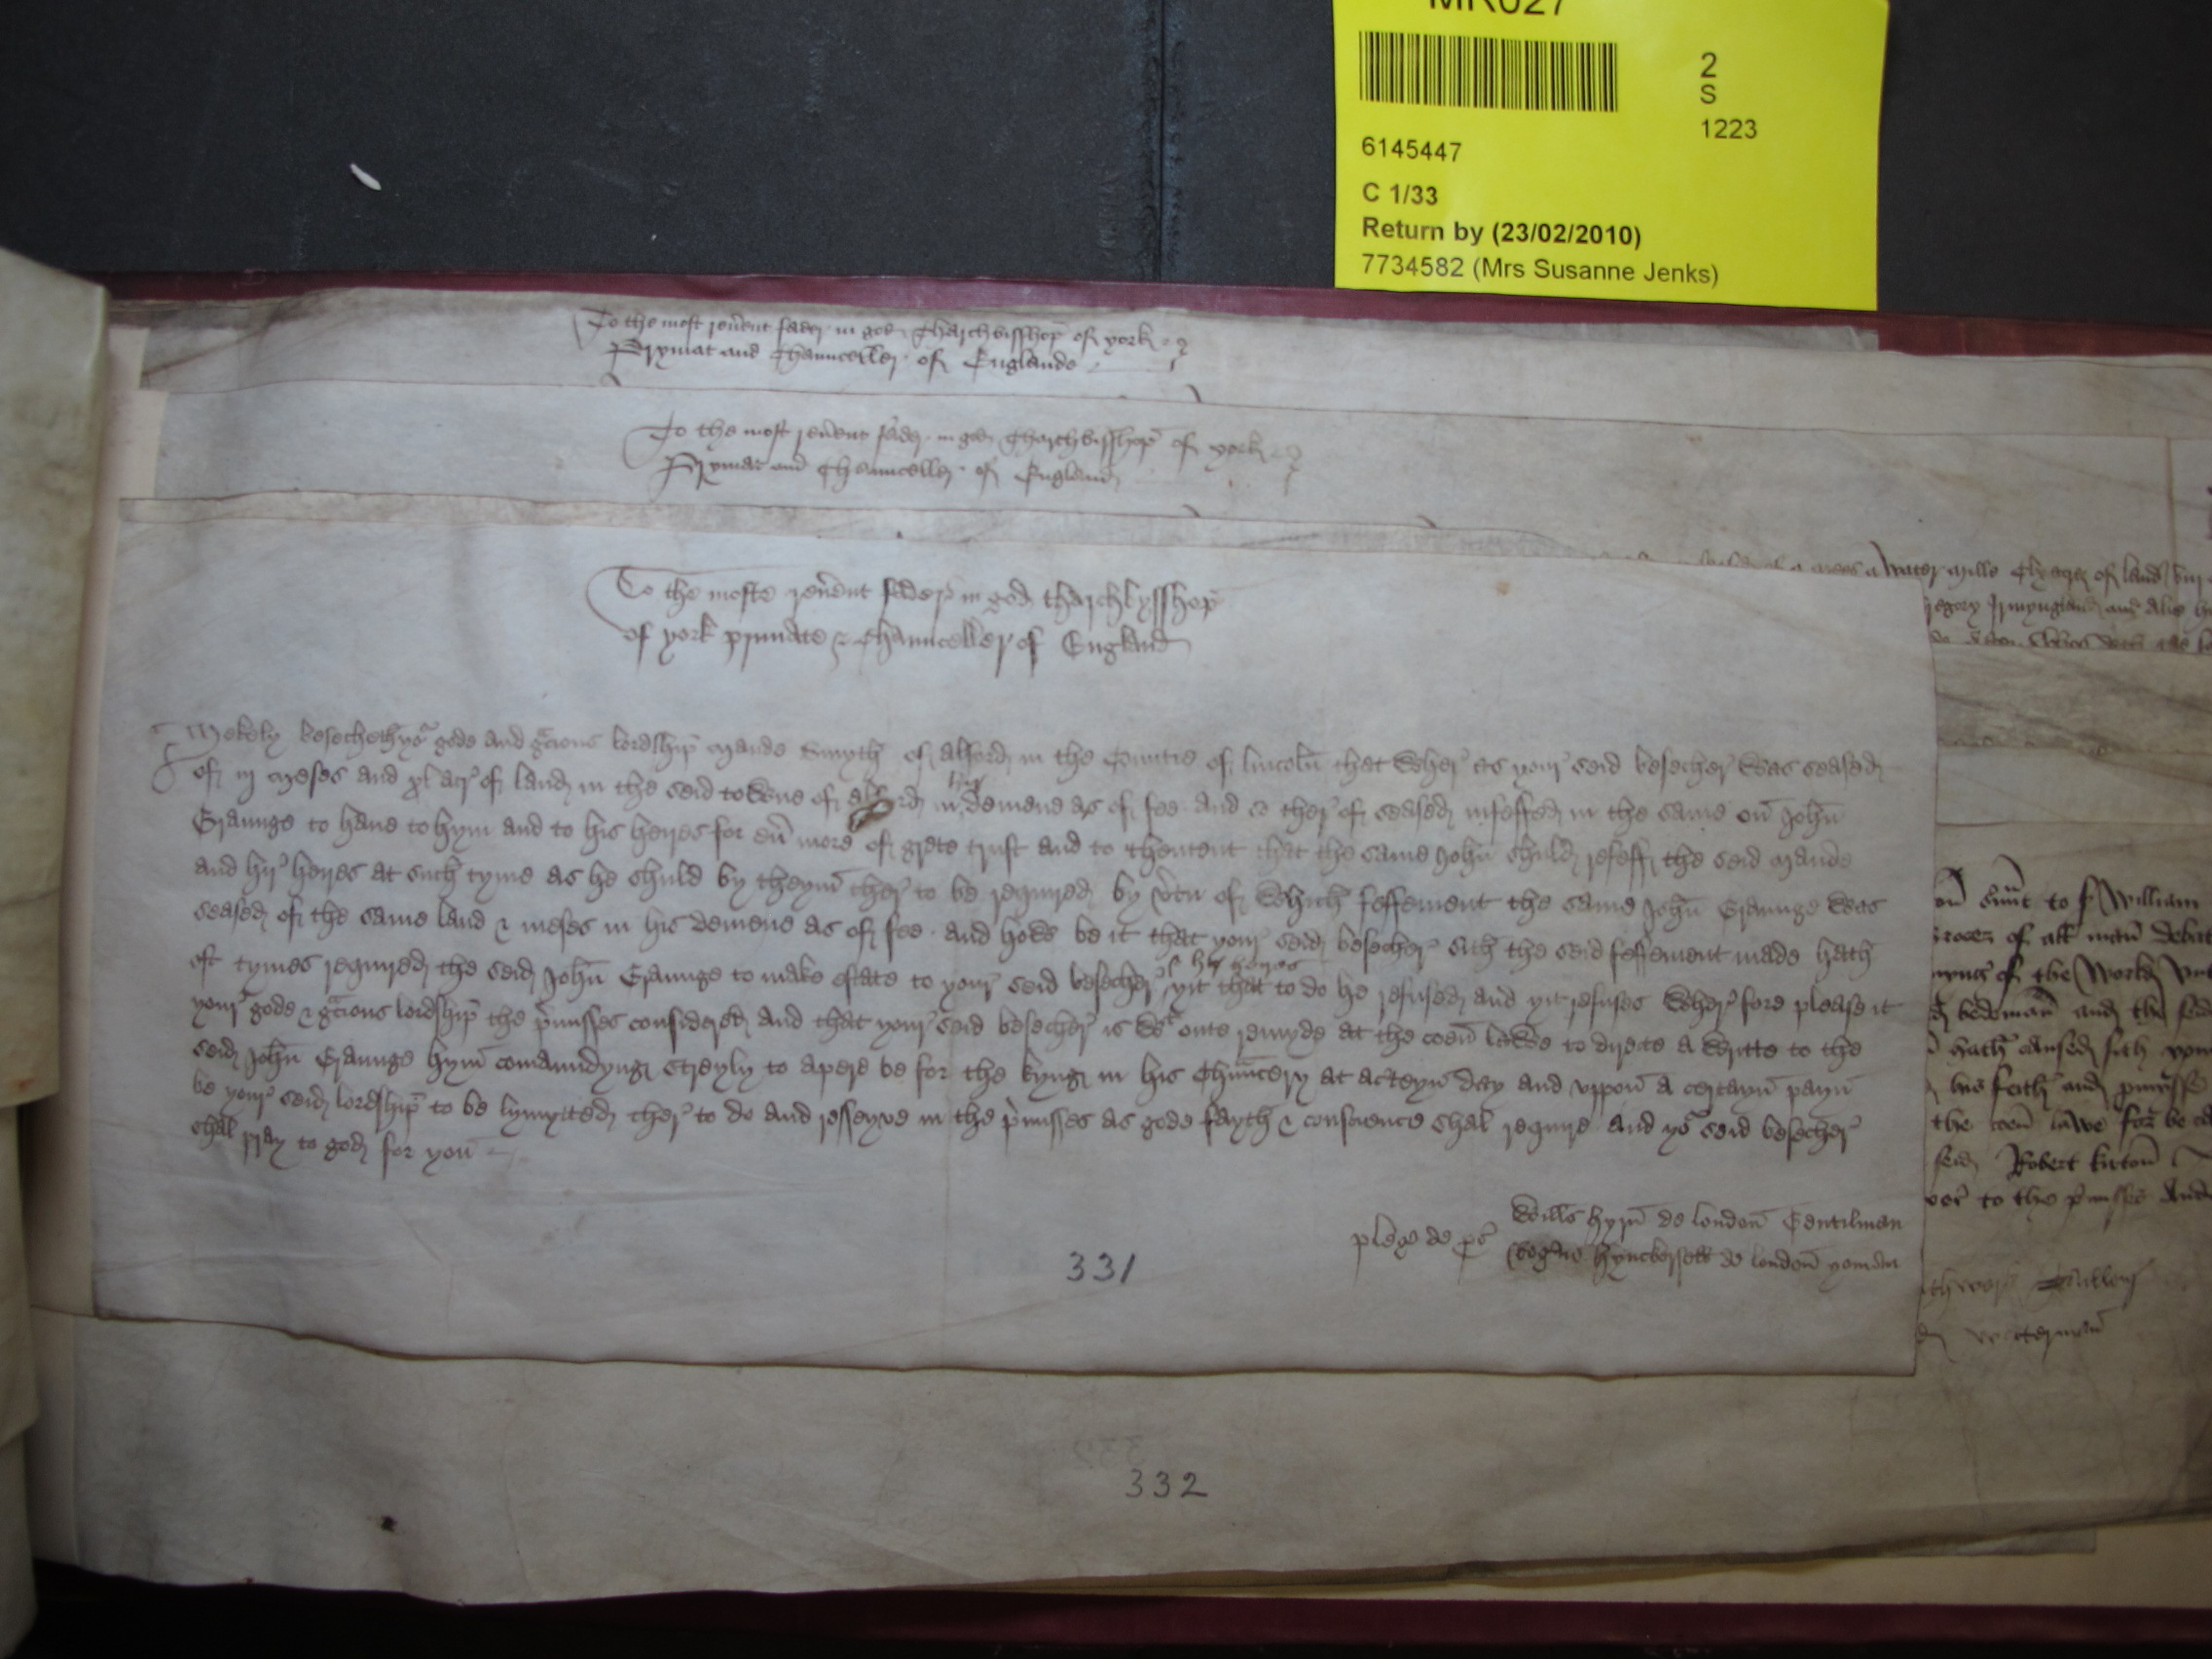 MR027
2
S
1223
6145447
C 1/33
Return by (23/02/2010)
7734582 (Mrs Susanne Jenks)
To the most reu'ent fader in god Tharchbisshop of york
Prymat and Chaunceller of Englande
To the most reu'ent fader in god Tharchbisshop of york
Prymat and Chaunceller of England
To the moste reu'ent fader in god tharchbysshop
of york primate & Chaunceller of England
Mekely besecheth yor gode and gracious lordship Maude Smyth of Alford in the Countie of lincoln that Wher' as your' seid besecher' Was seased
of ij meses and xl acr' of land in the seid towne of Alford in hir demene as of fee and so ther' of seased infeffed in the same on John
Graunge to haue to hym and to his heyres for eu' more of grete trust and to thentent that the same John shuld refeff the seid Maude
and hir' heyres at such tyme as he shuld by theym ther' to be requyred by v'tu of Which feffement the same John Graunge Was
seased of the same land & meses in his demene as of fee and howe be it that your' seid besecher' sith the seid feffement made hath
oft tymes requyred the seid John Graunge to make estate to your' seid besecher' & hir heyres yit that to do he refused and yit refuses Wher' fore please it
your' gode & gracious lordship the p'misses considered and that your' seid besecher' is wt oute remyde at the coen lawe to directe a Writte to the
seid John Graunge hym comaundyng streyly to apere be for the kyng in his Chauncery at acteyn day and vppon a certayn payn
be your' seid lordship to be lymyted ther' to do and resseyve in the p'misses as gode fayth & conscience shal require and yor seid besecher'
shal pray to god for you
pleg' de ps' Will's hyrn de london Gentilman
de london yoman
331
332
a water mylle acres of land
and Also
on s'uunt to William
of all man' debat
of the World
bedeman and the seid
hath caused
his feith and p'misse
the coen lawe for be
seid Robert kirton
to the p'misses And